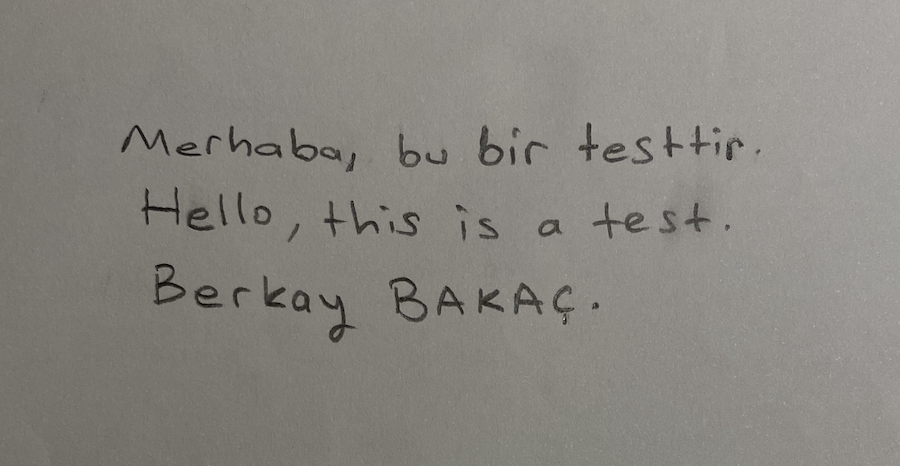 Merhaba, bu bir testtir.
Hello, this is a test.
Berkay BAKAÇ.